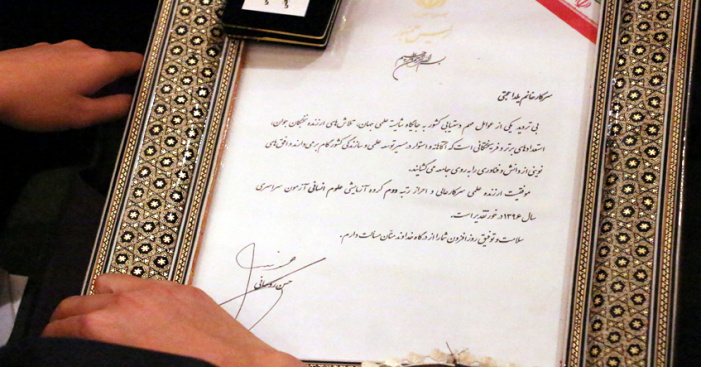 رئیس جمهور
بسم الله الرحمن الرحیم
سرکار خانم یلدا حجتی
بی تردید یکی از عوامل مهم دستیابی کشور به جایگاه شایسته علمی جهان، تلاش‌های ارزنده نخبگان جوان،
استعدادهای برتر و فرهیختگانی است که آگاهانه و استوار در مسیر توسعه علمی و سازندگی کشور گام برمی‌دارند و افق‌های
نوینی از دانش و فناوری را به روی جامعه می‌گشایند.
موفقیت ارزنده علمی سرکارعالی و احراز رتبه دوم گروه آزمایش علوم انسانی آزمون سراسری
سال ۱۳۹۶ در خور تقدیر است.
سلامت و توفیق روزافزون شما را از درگاه خداوند منان مسألت دارم.
حسن روحانی